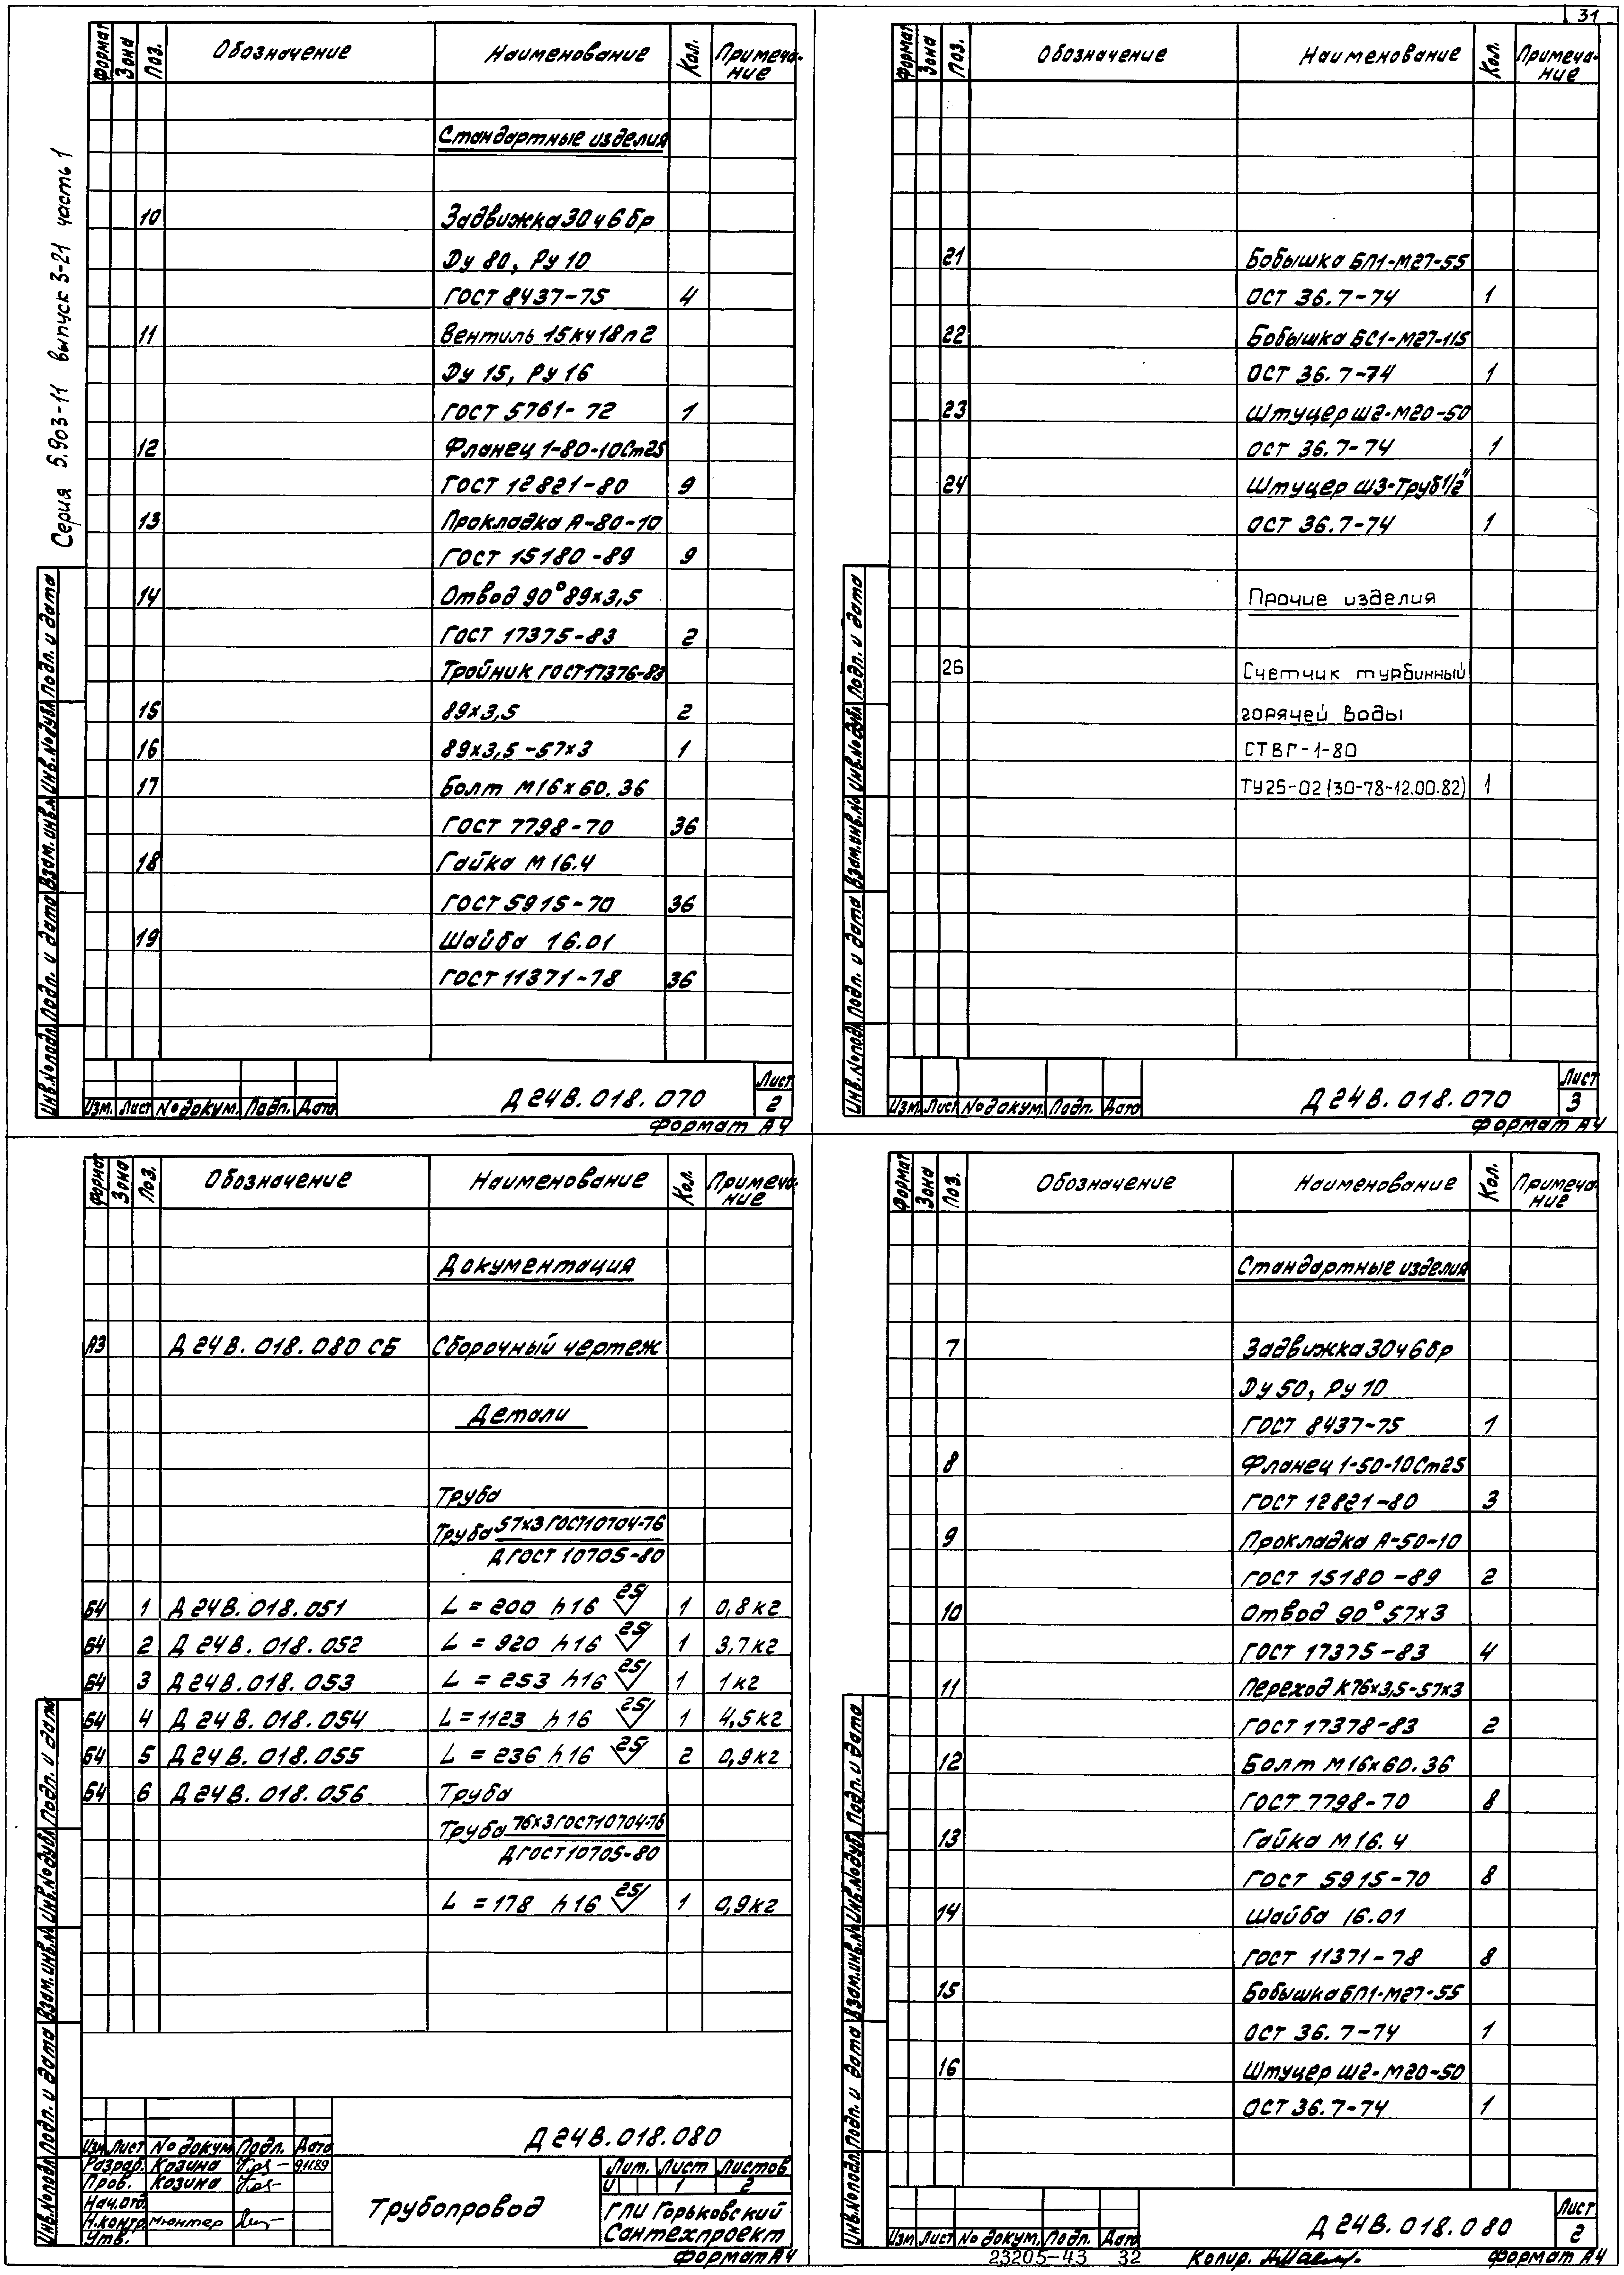 31
Серия 5.903-11 выпуск 3-21 часть 1
Формат Зона Поз. Обозначение Наименование Кол. Примеча-
ние
Стандартные изделия
10 Задвижка 30ч6бр
Ду 80, Ру 10
ГОСТ 8437-75 4
11 Вентиль 15кч18п2
Ду 15, Ру 16
ГОСТ 5761-72 1
12 Фланец 1-80-10Ст25
ГОСТ 12821-80 9
13 Прокладка А-80-10
ГОСТ 15180-89 9
14 Отвод 90° 89х3,5
ГОСТ 17375-83 2
Тройник ГОСТ17376-83
15 89х3,5 2
16 89х3,5-57х3 1
17 Болт М16х60.36
ГОСТ 7798-70 36
18 Гайка М16.4
ГОСТ 5915-70 36
19 Шайба 16.01
ГОСТ 11371-78 36
Инв.№подл. Подп. и дата Взам.инв.№ Инв.№дубл. Подп. и дата
Изм. Лист № докум. Подп. Дата
Д24В.018.070
Лист
2
Формат А4
Формат Зона Поз. Обозначение Наименование Кол. Примеча-
ние
21 Бобышка БП1-М27-55
ОСТ 36.7-74 1
22 Бобышка БС1-М27-115
ОСТ 36.7-74 1
23 Штуцер Ш2-М20-50
ОСТ 36.7-74 1
24 Штуцер Ш3-Труб1/2"
ОСТ 36.7-74 1
Прочие изделия
26 Счетчик турбинный
горячей воды
СТВГ-1-80
ТУ25-02(30-78-12.00.82) 1
Инв.№подл. Подп. и дата Взам.инв.№ Инв.№дубл. Подп. и дата
Изм. Лист № докум. Подп. Дата
Д24В.018.070
Лист
3
Формат А4
Формат Зона Поз. Обозначение Наименование Кол. Примеча-
ние
Документация
А3 Д24В.018.080 СБ Сборочный чертеж
Детали
Труба
Труба 57х3 ГОСТ10704-76
Д ГОСТ 10705-80
Б4 1 Д24В.018.051 L = 200 h16 25/ 1 0,8кг
Б4 2 Д24В.018.052 L = 920 h16 25/ 1 3,7кг
Б4 3 Д24В.018.053 L = 253 h16 25/ 1 1кг
Б4 4 Д24В.018.054 L = 1123 h16 25/ 1 4,5кг
Б4 5 Д24В.018.055 L = 236 h16 25/ 2 0,9кг
Б4 6 Д24В.018.056 Труба
Труба 76х3 ГОСТ10704-76
Д ГОСТ10705-80
L = 178 h16 25/ 1 0,9кг
Инв.№подл. Подп. и дата Взам.инв.№ Инв.№дубл. Подп. и дата
Изм. Лист № докум. Подп. Дата
Разраб. Козина 9.11.89
Пров. Козина
Нач.отд.
Н.контр. Мюнтер
Утв.
Д24В.018.080
Трубопровод
Лит. Лист Листов
И 1 2
ГПИ Горьковский
Сантехпроект
Формат А4
Формат Зона Поз. Обозначение Наименование Кол. Примеча-
ние
Стандартные изделия
7 Задвижка 30ч6бр
Ду 50, Ру 10
ГОСТ 8437-75 1
8 Фланец 1-50-10Ст25
ГОСТ 12821-80 3
9 Прокладка А-50-10
ГОСТ 15180-89 2
10 Отвод 90° 57х3
ГОСТ 17375-83 4
11 Переход К76х3,5-57х3
ГОСТ 17378-83 2
12 Болт М16х60.36
ГОСТ 7798-70 8
13 Гайка М16.4
ГОСТ 5915-70 8
14 Шайба 16.01
ГОСТ 11371-78 8
15 Бобышка БП1-М27-55
ОСТ 36.7-74 1
16 Штуцер Ш2-М20-50
ОСТ 36.7-74 1
Инв.№подл. Подп. и дата Взам.инв.№ Инв.№дубл. Подп. и дата
Изм. Лист № докум. Подп. Дата
Д24В.018.080
Лист
2
23205-43 32 Копир. Формат А4